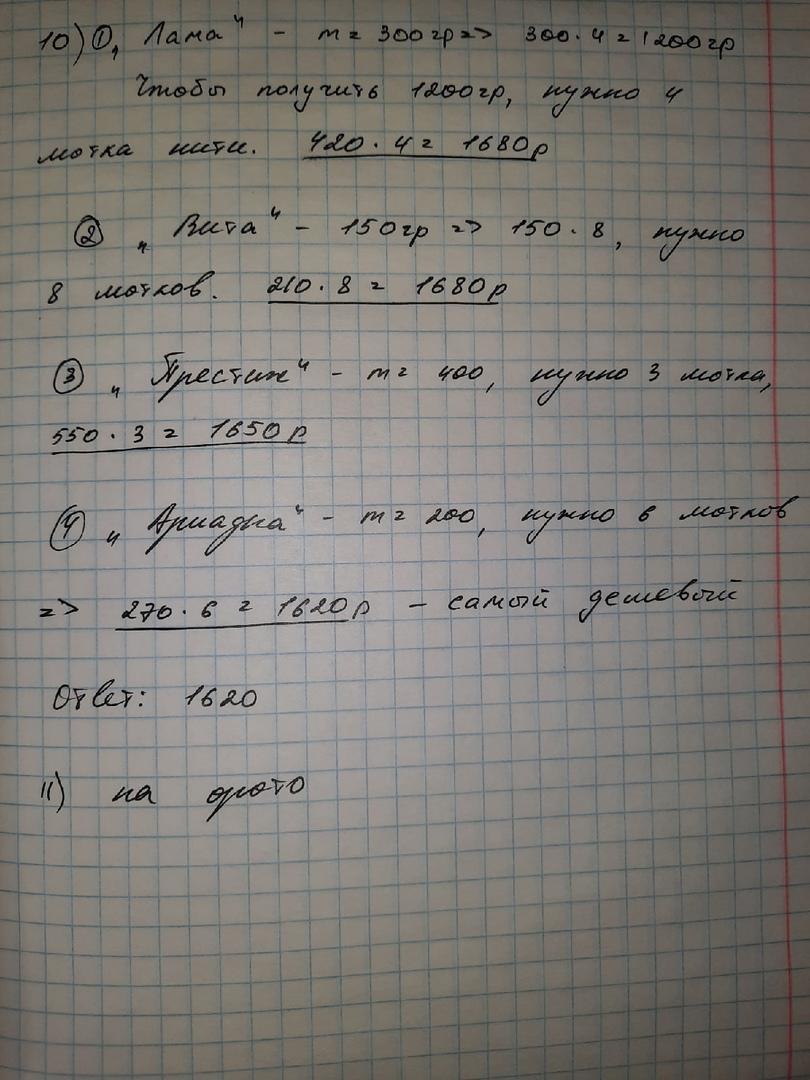 10) ① „Лама" - m = 300гр => 300·4 = 1200гр
Чтобы получить 1200гр, нужно 4
мотка нити. 420·4 = 1680р
② „Вита" - 150гр => 150·8, нужно
8 мотков. 210·8 = 1680р
③ „Престиж" - m = 400, нужно 3 мотка,
550·3 = 1650р
④ „Ариадна" - m = 200, нужно 6 мотков
=> 270·6 = 1620р - самый дешевый
Ответ: 1620
11) на фото